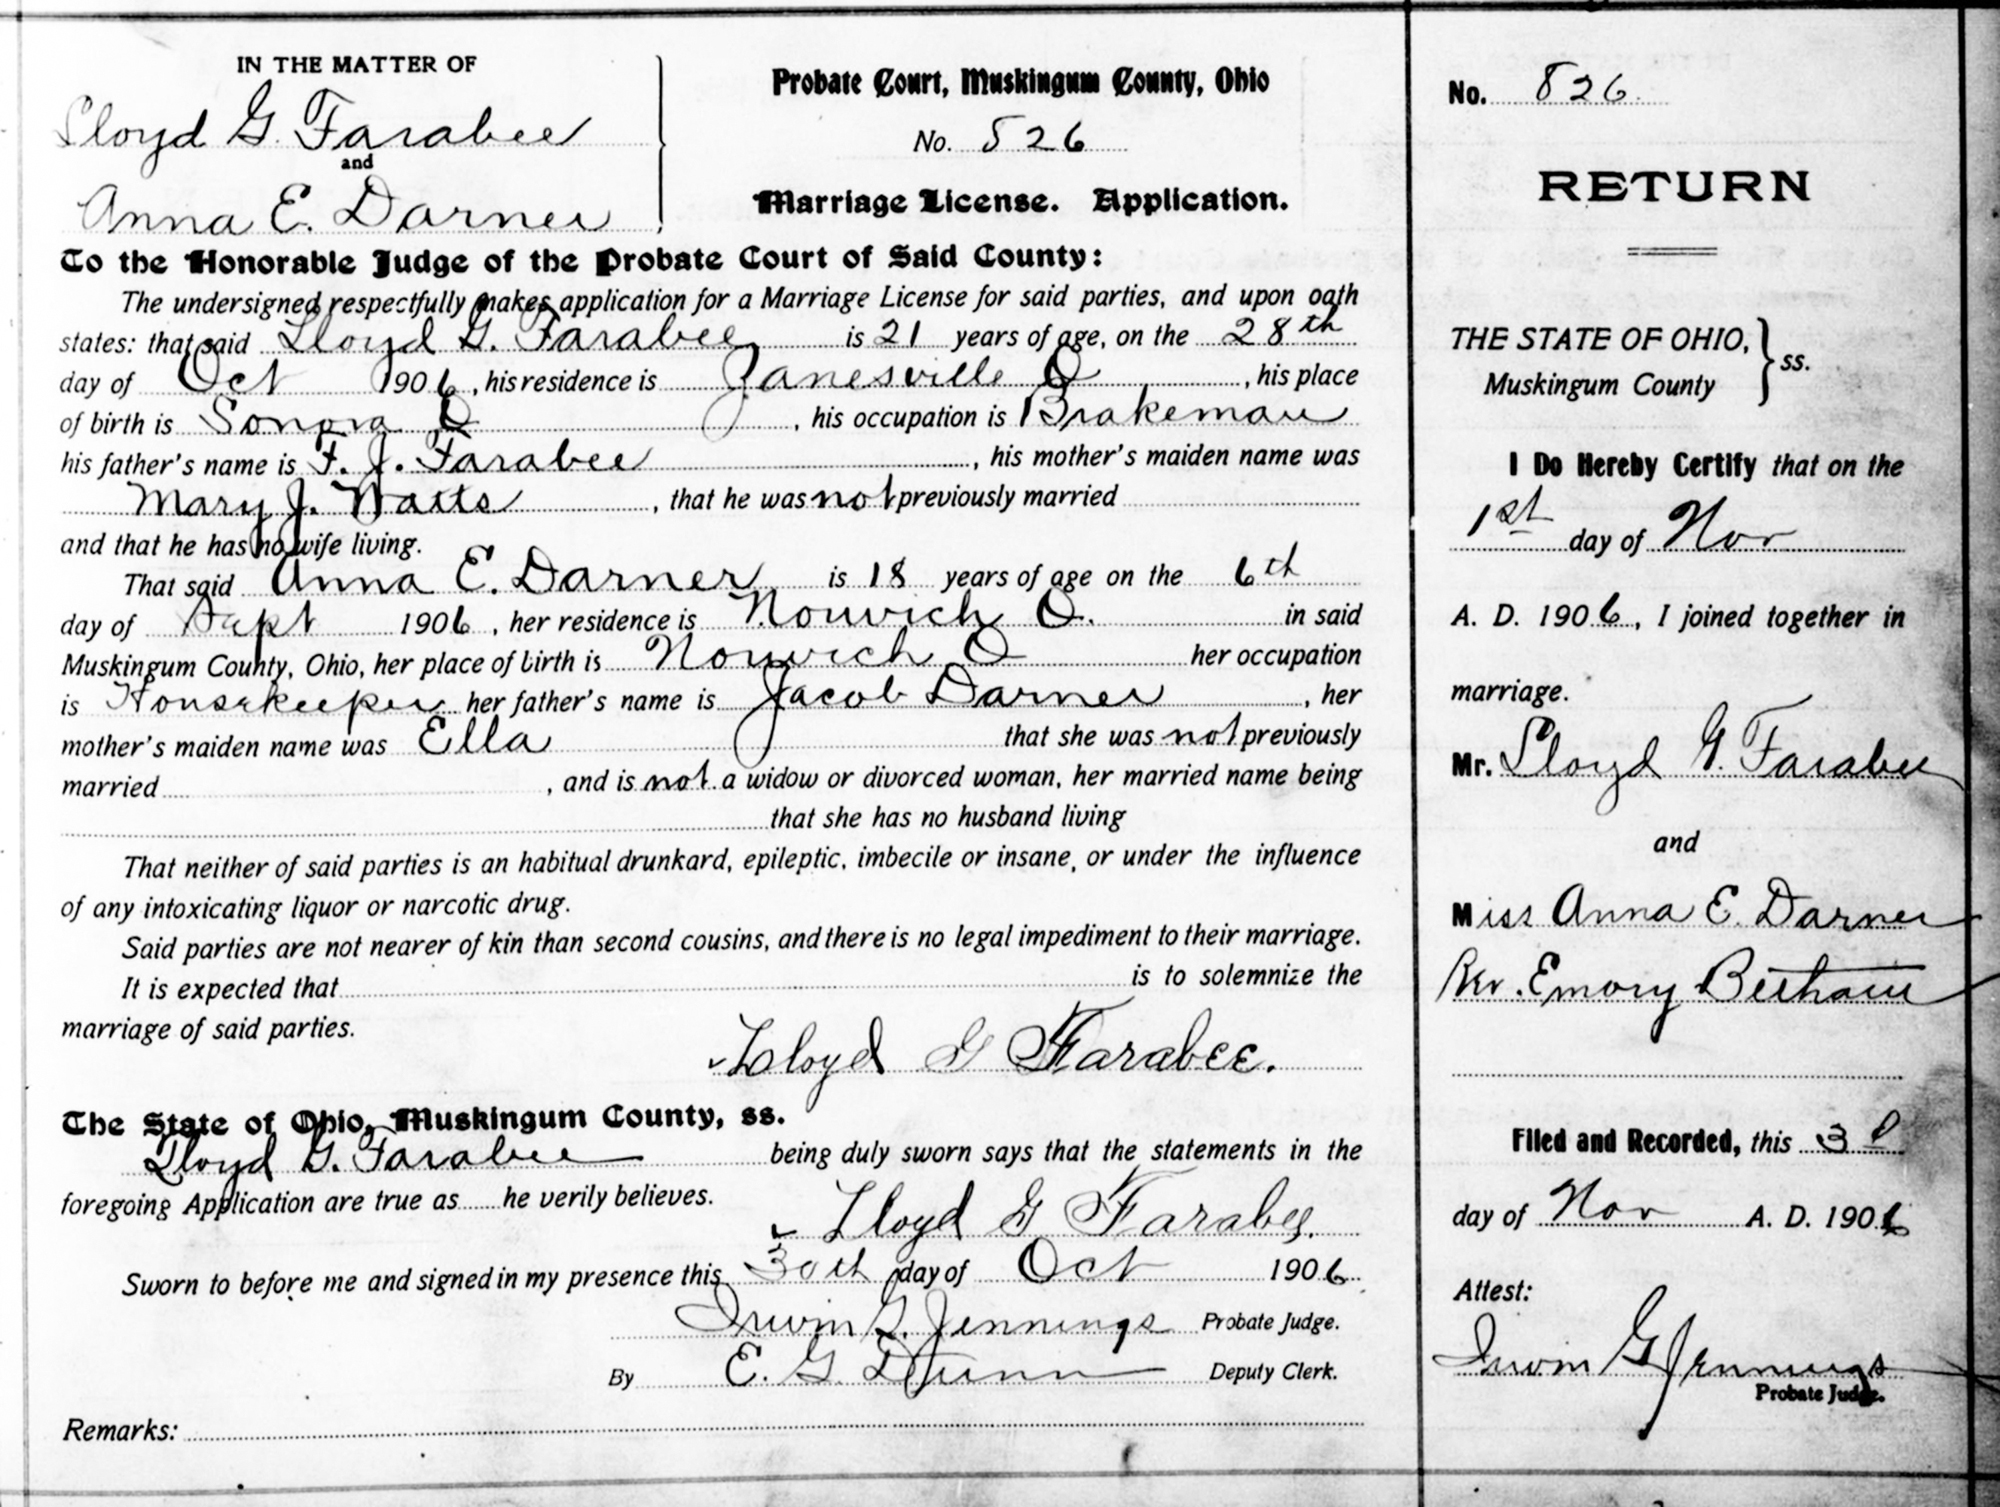 IN THE MATTER OF
Lloyd G. Farabee
and
Anna E. Darner
Probate Court, Muskingum County, Ohio
No. 526
Marriage License. Application.
To the Honorable Judge of the Probate Court of Said County:
The undersigned respectfully makes application for a Marriage License for said parties, and upon oath
states: that said Lloyd G. Farabee is 21 years of age, on the 28th
day of Oct 1906, his residence is Zanesville O, his place
of birth is Sonora O, his occupation is Brakeman
his father's name is F. J. Farabee, his mother's maiden name was
Mary J. Watts, that he was not previously married
and that he has no wife living.
That said Anna E. Darner is 18 years of age on the 6th
day of Sept 1906, her residence is Norwich O. in said
Muskingum County, Ohio, her place of birth is Norwich O her occupation
is Housekeeper her father's name is Jacob Darner, her
mother's maiden name was Ella that she was not previously
married , and is not a widow or divorced woman, her married name being
that she has no husband living
That neither of said parties is an habitual drunkard, epileptic, imbecile or insane, or under the influence
of any intoxicating liquor or narcotic drug.
Said parties are not nearer of kin than second cousins, and there is no legal impediment to their marriage.
It is expected that is to solemnize the
marriage of said parties.
Lloyd G Farabee.
The State of Ohio, Muskingum County, ss.
Lloyd G. Farabee being duly sworn says that the statements in the
foregoing Application are true as he verily believes.
Lloyd G Farabee.
Sworn to before me and signed in my presence this 30th day of Oct 1906.
Irwin G. Jennings Probate Judge.
By E. G. Dunn Deputy Clerk.
Remarks:
No. 826
RETURN
THE STATE OF OHIO,
Muskingum County
ss.
I Do Hereby Certify that on the
1st day of Nov
A. D. 1906, I joined together in
marriage.
Mr. Lloyd G. Farabee
and
Miss Anna E. Darner
Rev. Emory
Filed and Recorded, this 3d
day of Nov A. D. 1906
Attest:
Irwin G Jennings
Probate Judge.